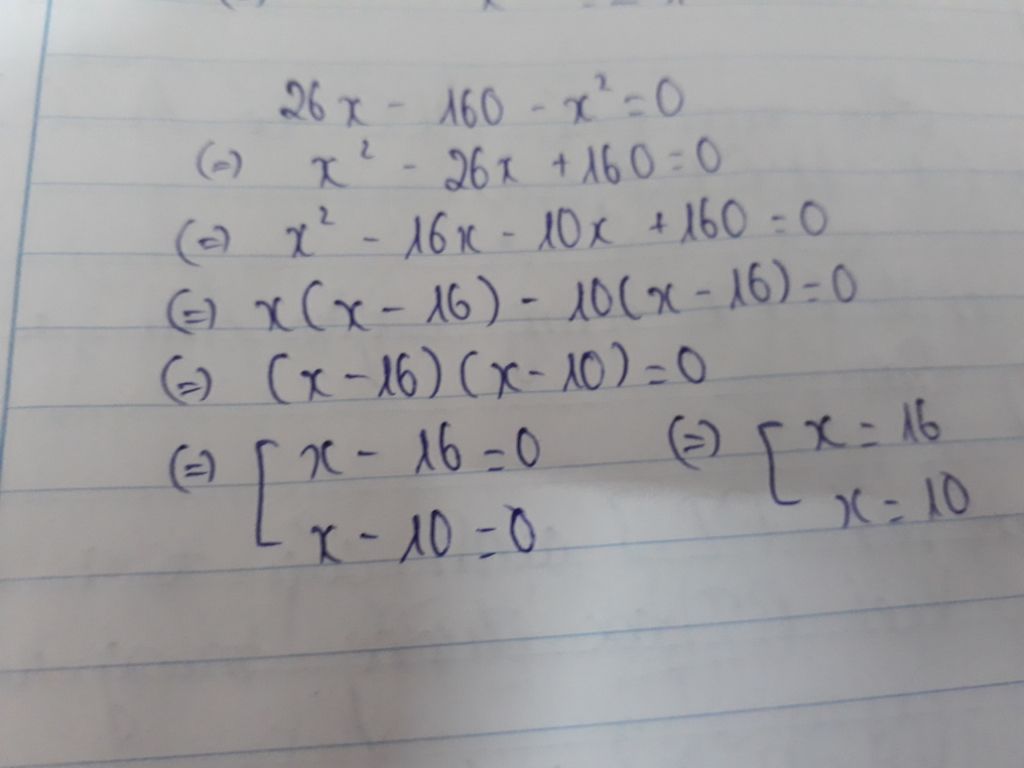 26x - 160 - x² = 0
(=) x² - 26x + 160 = 0
(=) x² - 16x - 10x + 160 = 0
(=) x(x - 16) - 10(x - 16) = 0
(=) (x - 16)(x - 10) = 0
(=) [ x - 16 = 0 (=) [ x = 16
x - 10 = 0 x = 10